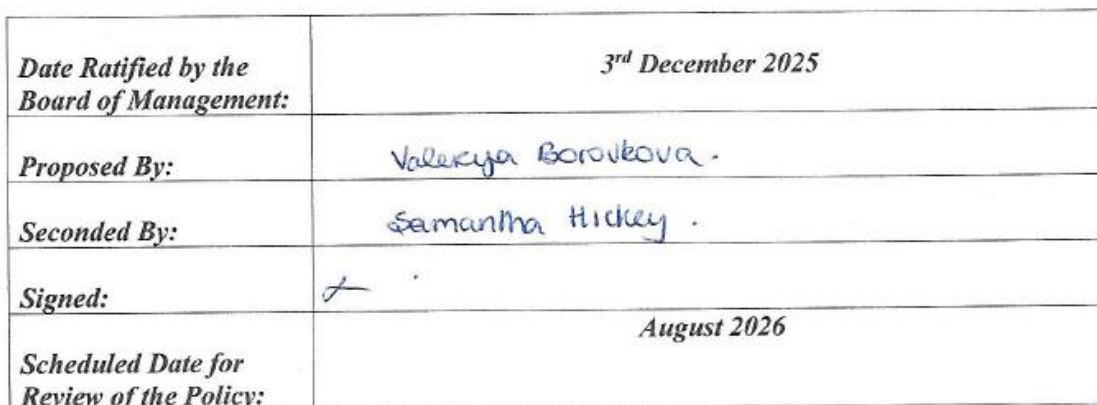 Date Ratified by the
Board of Management:
3rd December 2025
Proposed By:
Valerija Borovkova.
Seconded By:
Samantha Hickey.
Signed:
August 2026
Scheduled Date for
Review of the Policy: